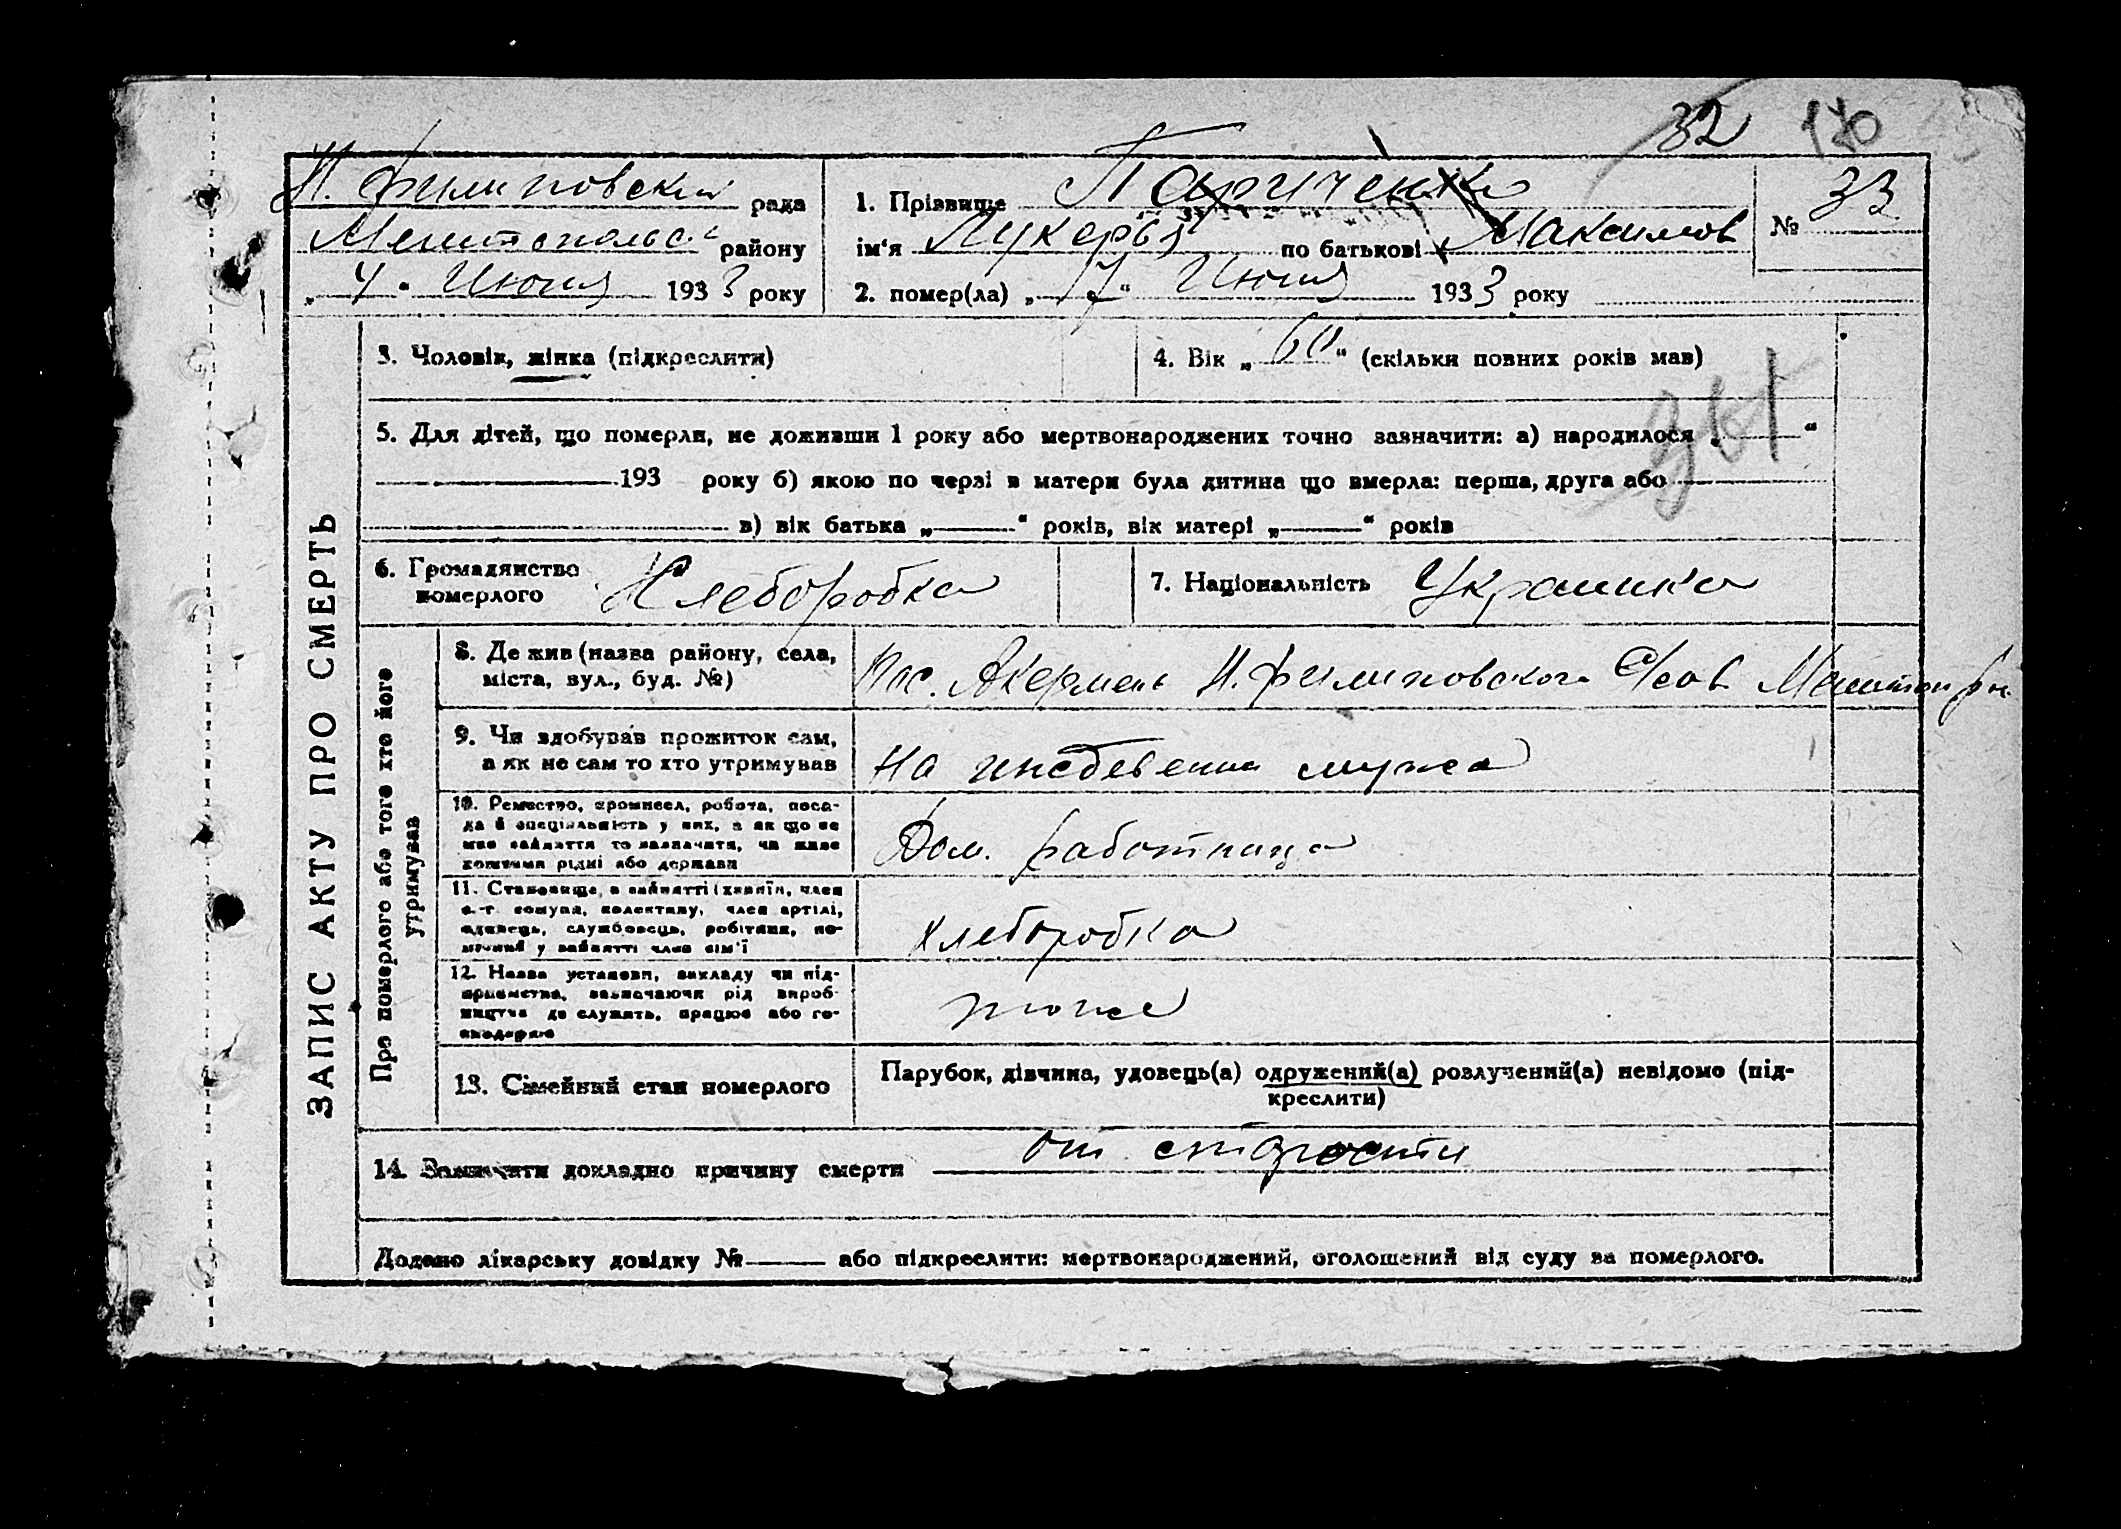 32
Н. Филиповская рада
Мелитопольск району
„ 4 “ Июня 1933 року
1. Прізвище
ім‘я Лукерья по батькові Максимов
№ 33
2. помер(ла) „ “ Июня 1933 року
ЗАПИС АКТУ ПРО СМЕРТЬ
3. Чоловік, жінка (підкреслити)
4. Вік „ 60 “ (скільки повних років мав)
5. Для дітей, що померли, не доживши 1 року або мертвонароджених точно зазначити: а) народилося „ “
193 року б) якою по черзі в матери була дитина що вмерла: перша, друга або
в) вік батька „ “ років, вік матері „ “ років
6. Громадянство
померлого
Хлеборобка
7. Національність Украинка
Про померлого або того хто його
утримував
8. Де жив (назва району, села,
міста, вул., буд. №)
Пос. Акермень Н. Филиповского С/сов
9. Чи здобував прожиток сам,
а як не сам то хто утримував
На мужа
10. Ремество, промисел, робота, поса-
да й специіальність у них, а як що не
мав заняття то зазначити, чи жив
коштами рідні або держави
Дом. работница
11. Становище, в занятті (хазяїн, член
с.-г. комуни, колективу, член артілі,
службовець, робітник, по-
мічний у занятті член сім‘ї
хлеборобка
12. Назва установи, закладу чи під-
приємства, зазначаючи рід вироб-
ництва де служить, працює або го-
тоже
13. Сімейний стан померлого
Парубок, дівчина, удовець(а) одружений(а) розлучений(а) невідомо (під-
креслити)
14. Зазначити докладно причину смерти от старости
Додано лікарську довідку № або підкреслити: мертвонароджений, оголошений від суду за померлого.